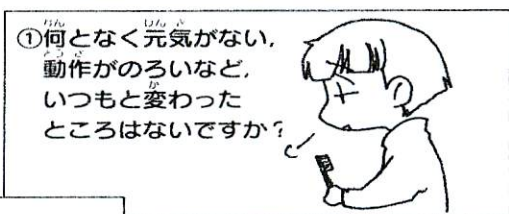 ①何となく元気がない,
動作がのろいなど,
いつもと変わった
ところはないですか?